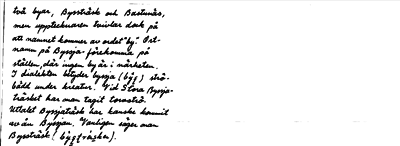 två byar, Bysträsk och Bastunäs,
men upptecknaren tvivlar dock på
att namnet kommer av ordet "by". Ort-
namn på Byssja- förekomma på
ställen, där ingen by är i närheten.
I dialekten betyder byssja strö-
bädd under kreatur. Vid Stora Byssja-
träsket har man tagit torvströ.
Uttalet Byssjaträsk har kanske kommit
av ån Byssjan. Vanligen säger man
Byssträsk